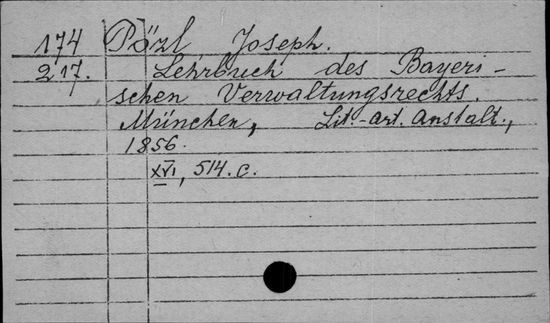 174 Pözl, Joseph.
217. Lehrbuch des Bayeri-
schen Verwaltungsrechts.
München, Lit.-art. Anstalt.,
1856.
XVI, 514. c.